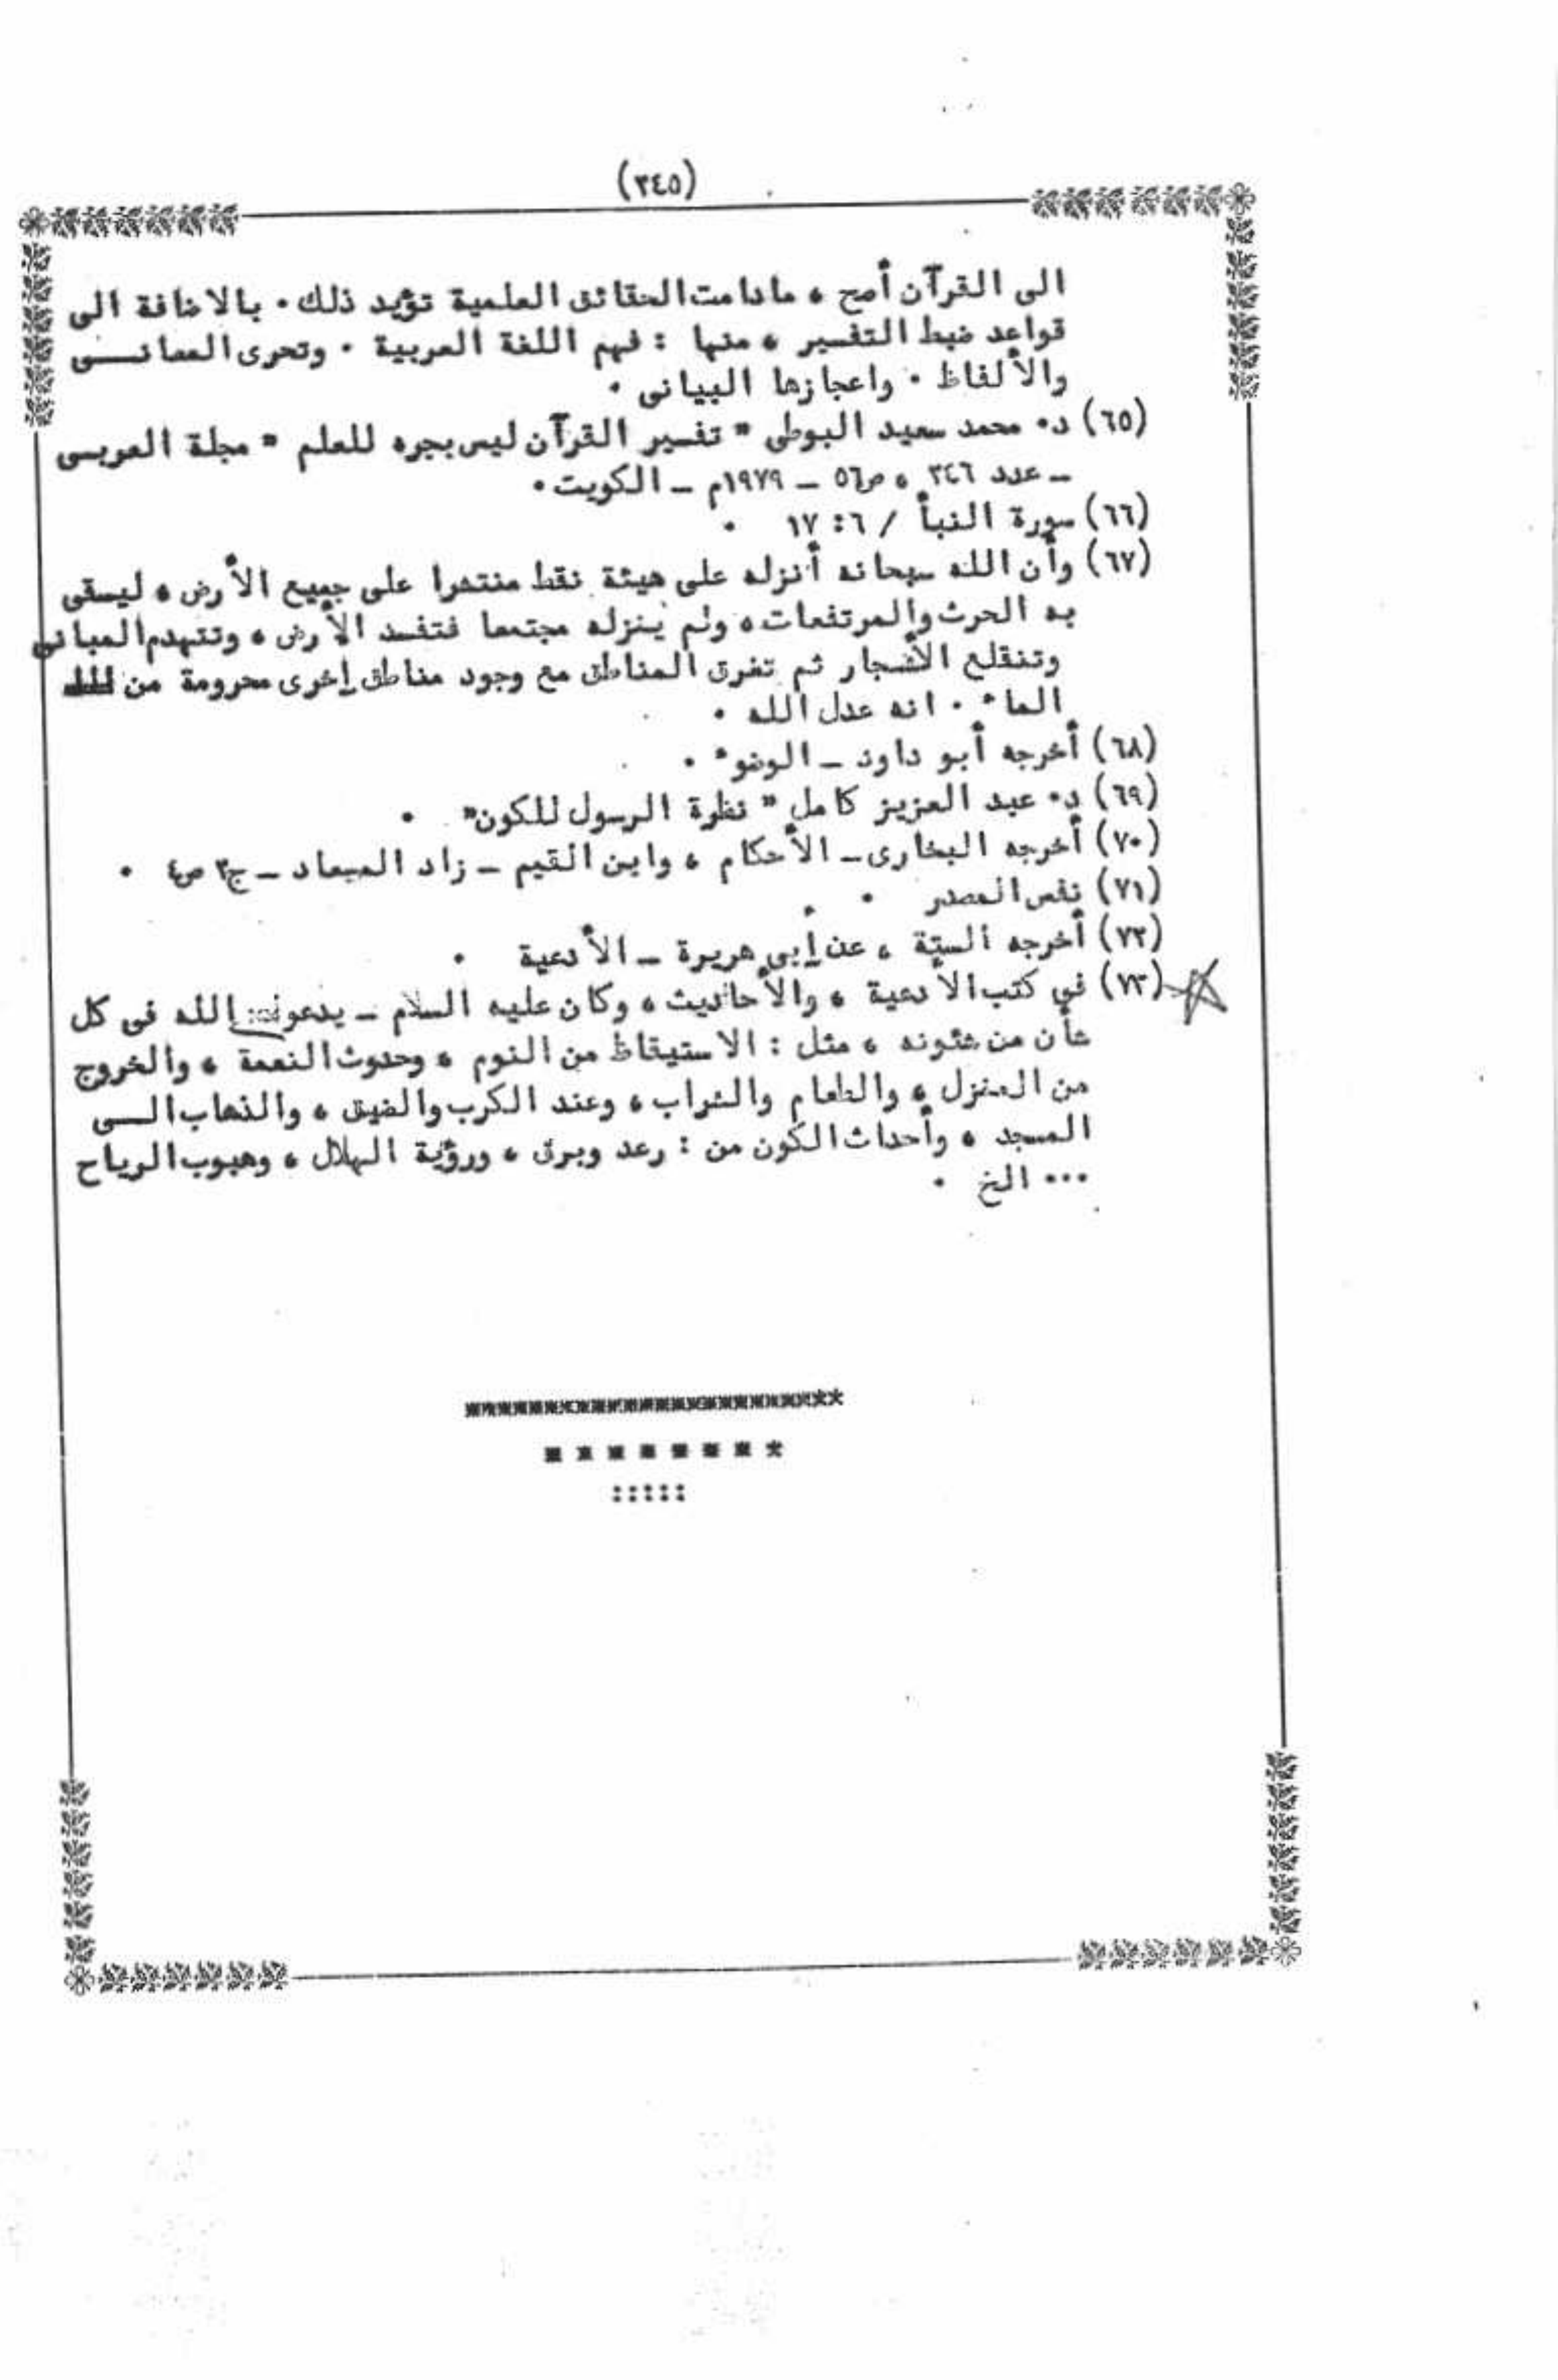 (٣٤٥)
الى القرآن أصح ، مادامت الحقائق العلمية تؤيد ذلك . بالاضافة الى
قواعد ضبط التفسير ، منها : فهم اللغة العربية . وتحرى المعانــى
والألفاظ . واعجازها البيانى .
(٦٥) د. محمد سعيد البوطى " تفسير القرآن ليس بجره للعلم " مجلة العربى
ـ عدد ٢٤٦ ، ص٥٦ ـ ١٩٧٩م ـ الكويت .
(٦٦) سورة النبأ / ٦ : ١٧ .
(٦٧) وأن الله سبحانه أنزله على هيئة نقط منتشرا على جميع الأرض ، ليسقى
به الحرث والمرتفعات ، ولم ينزله مجتمعا فتفسد الأرض ، وتتهدم المبانى
وتنقلع الأشجار ثم تغرق المناطق مع وجود مناطق اخرى محرومة من
الماء . انه عدل الله .
(٦٨) أخرجه أبو داود ـ الوضوء .
(٦٩) د. عبد العزيز كامل " نظرة الرسول للكون" .
(٧٠) أخرجه البخارى ـ الأحكام ، وابن القيم ـ زاد الميعاد ـ ج٣ ص٤ .
(٧١) نفس المصدر .
(٧٢) أخرجه الستة ، عن ابى هريرة ـ الأدعية .
(٧٣) فى كتب الأدعية ، والأحاديث ، وكان عليه السلام ـ يدعو الله فى كل
شأن من شئونه ، مثل : الاستيقاظ من النوم ، وحدوث النعمة ، والخروج
من المنزل ، والطعام والشراب ، وعند الكرب والضيق ، والذهاب الــى
المسجد ، وأحداث الكون من : رعد وبرق ، ورؤية الهلال ، وهبوب الرياح
... الخ .